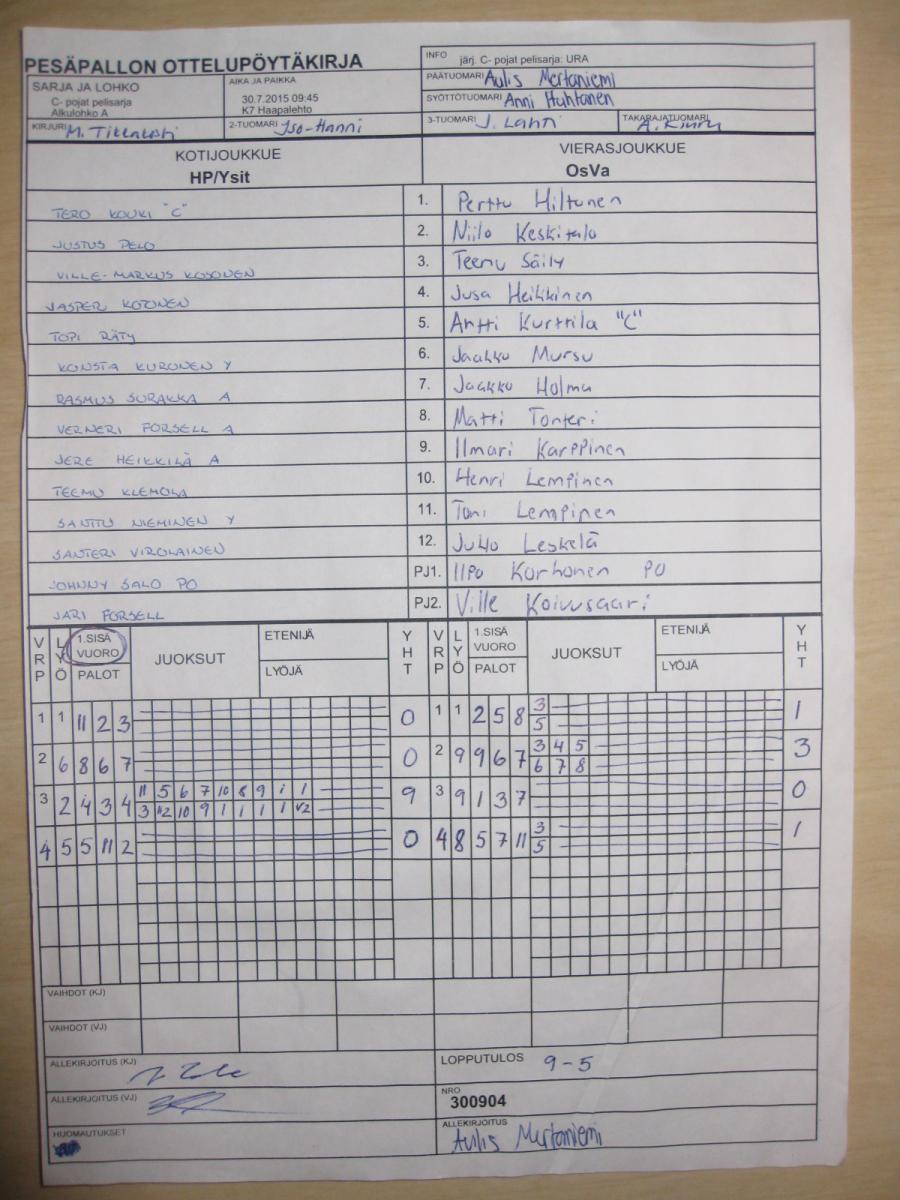 PESÄPALLON OTTELUPÖYTÄKIRJA
INFO järj. C- pojat pelisarja: URA
SARJA JA LOHKO
C- pojat pelisarja
Alkulohko A
AIKA JA PAIKKA
30.7.2015 09:45
K7 Haapalehto
PÄÄTUOMARI Aulis Mertaniemi
SYÖTTÖTUOMARI Anni Huhtanen
KIRJURI M.
2-TUOMARI Iso-Hanni
3-TUOMARI J. Lahti
TAKARAJATUOMARI A.
KOTIJOUKKUE
HP/Ysit
VIERASJOUKKUE
OsVa
TERO KOUKI "C" 1. Perttu Hiltunen
JUSTUS PELO 2. Niilo Keskitalo
VILLE-MARKUS KOSONEN 3. Teemu Säily
JASPER KOTONEN 4. Jusa Heikkinen
TOPI RÄTY 5. Antti Kurttila "C"
KONSTA KURONEN Y 6. Jaakko Mursu
RASMUS SURAKKA A 7. Jaakko Holma
VERNERI FORSELL A 8. Matti Tonteri
JERE HEIKKILÄ A 9. Ilmari Karppinen
TEEMU KLEMOLA 10. Henri Lempinen
SANTTU NIEMINEN Y 11. Toni Lempinen
SANTERI VIROLAINEN 12. Juho Leskelä
JOHNNY SALO PO PJ1. Ilpo Korhonen PO
JARI FORSELL PJ2. Ville Koivusaari
VRP LYÖ 1.SISÄ VUORO PALOT JUOKSUT ETENIJÄ LYÖJÄ YHT VRP LYÖ 1.SISÄ VUORO PALOT JUOKSUT ETENIJÄ LYÖJÄ YHT
1 1 11 2 3 0 1 1 2 5 8 3 1
5
2 6 8 6 7 0 2 9 9 6 7 3 4 5 3
6 7 8
3 2 4 3 4 11 5 6 7 10 8 9 1 1 9 3 9 1 3 7 0
3 12 10 9 1 1 1 1 12
4 5 5 11 2 0 4 8 5 7 11 3 1
5
VAIHDOT (KJ)
VAIHDOT (VJ)
ALLEKIRJOITUS (KJ)
LOPPUTULOS 9-5
ALLEKIRJOITUS (VJ)
NRO
300904
HUOMAUTUKSET
ALLEKIRJOITUS
Aulis Mertaniemi